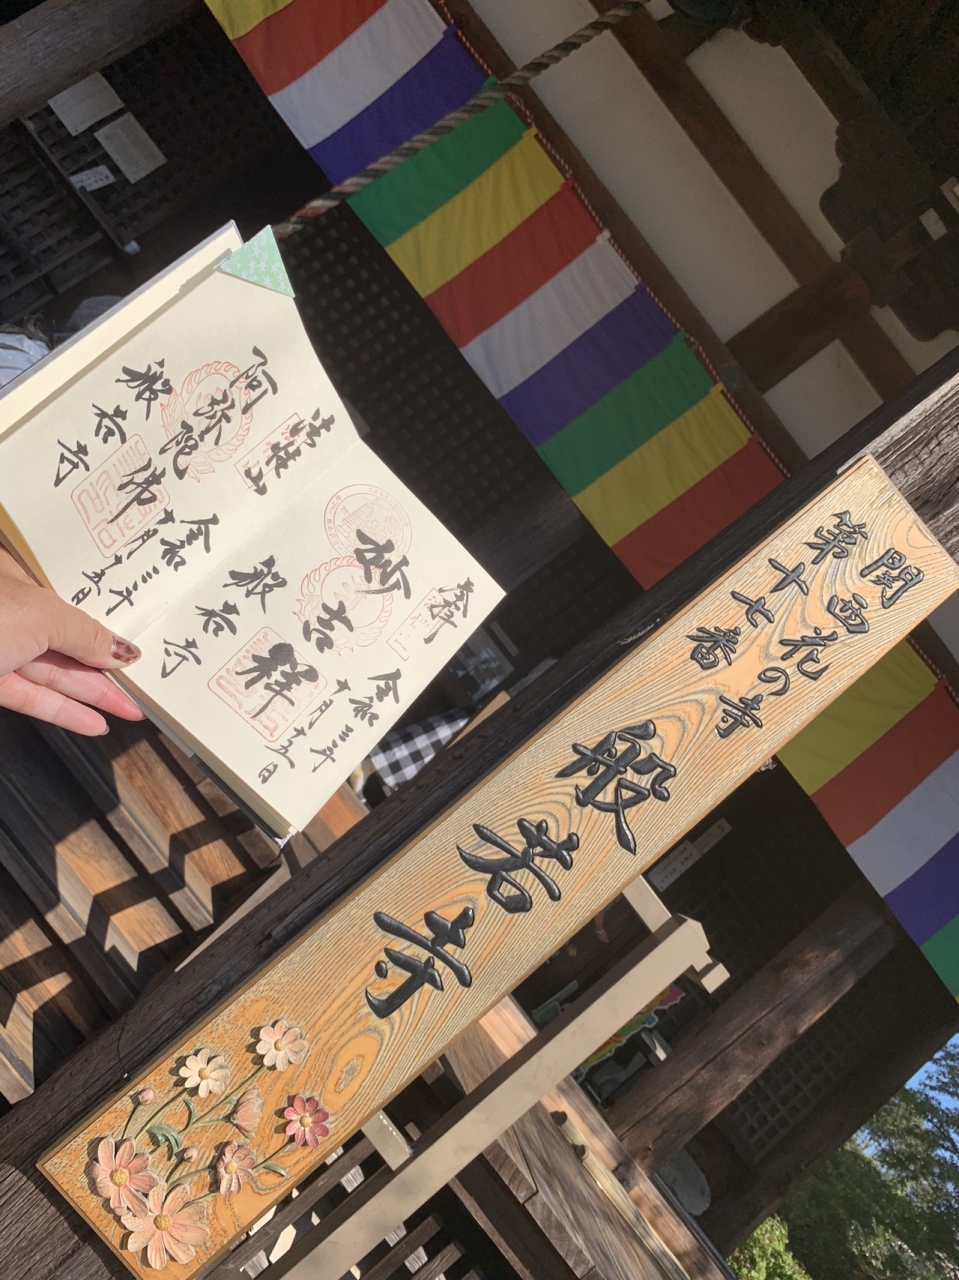 関西花の寺
第十七番
般若寺
奉拝
令和三年
十月十五日
妙吉祥
般若寺
法性山
令和三年
十月十五日
阿弥陀佛
般若寺